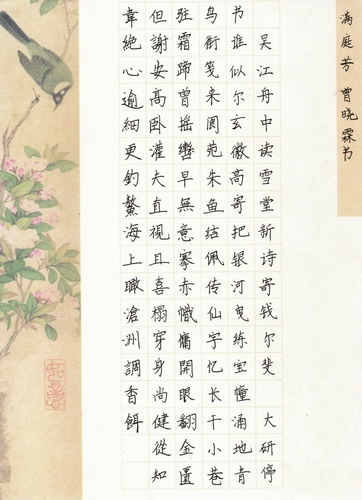 满庭芳 曾晓霖书
吴江舟中读雪堂新诗寄钱尔斐 大研停
书谁似尔玄徽高寄把银河曳练宝幢涌地青
鸟衔笺来阆苑朱鱼结佩传仙字忆长干小巷
驻霜蹄曾摇辔早無意搴赤幟慵開眼翻金匱
但謝安高卧灌夫直視且喜榻穿身尚健從知
韋絶心逾細更釣鰲海上瞰滄洲調香餌